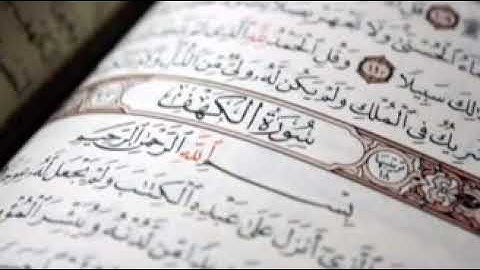 ٱلْحُسْنَىٰ وَلَا تَجْهَرْ بِصَلَا
ذَٰلِكَ سَبِيلًا ١١٠ وَقُلِ ٱلْحَمْدُ لِلَّهِ ٱلَّذِى لَمْ
شَرِيكٌ فِى ٱلْمُلْكِ وَلَمْ يَكُن لَّهُۥ وَلِىٌّ مِّنَ ٱلذُّلِّ
سُورَةُ ٱلْكَهْفِ
ترتيبها ١٨
بِسْمِ ٱللَّهِ ٱلرَّحْمَٰنِ ٱلرَّحِيمِ
ٱلَّذِىٓ أَنزَلَ عَلَىٰ عَبْدِهِ ٱلْكِتَٰبَ وَلَمْ يَجْعَل لَّهُۥ
مِّن لَّدُنْهُ وَيُبَشِّرَ